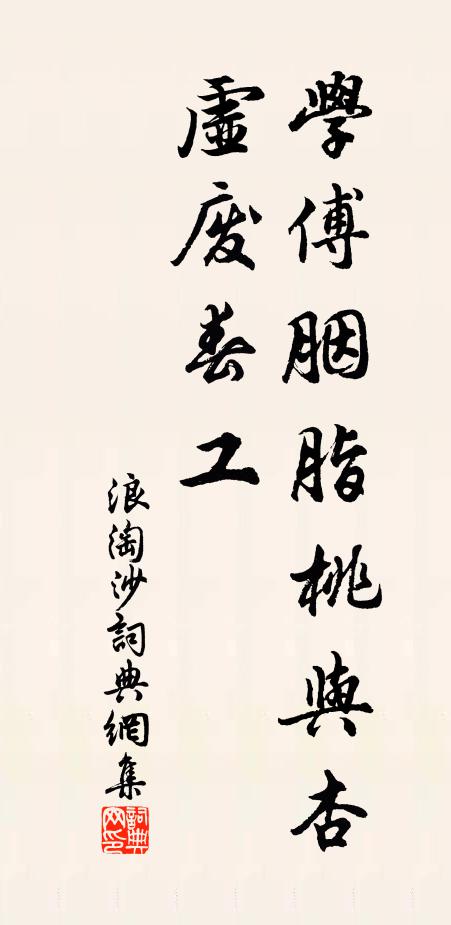 學傅胭脂桃與杏
虛廢春工
浪淘沙詞典網集
詞典網印